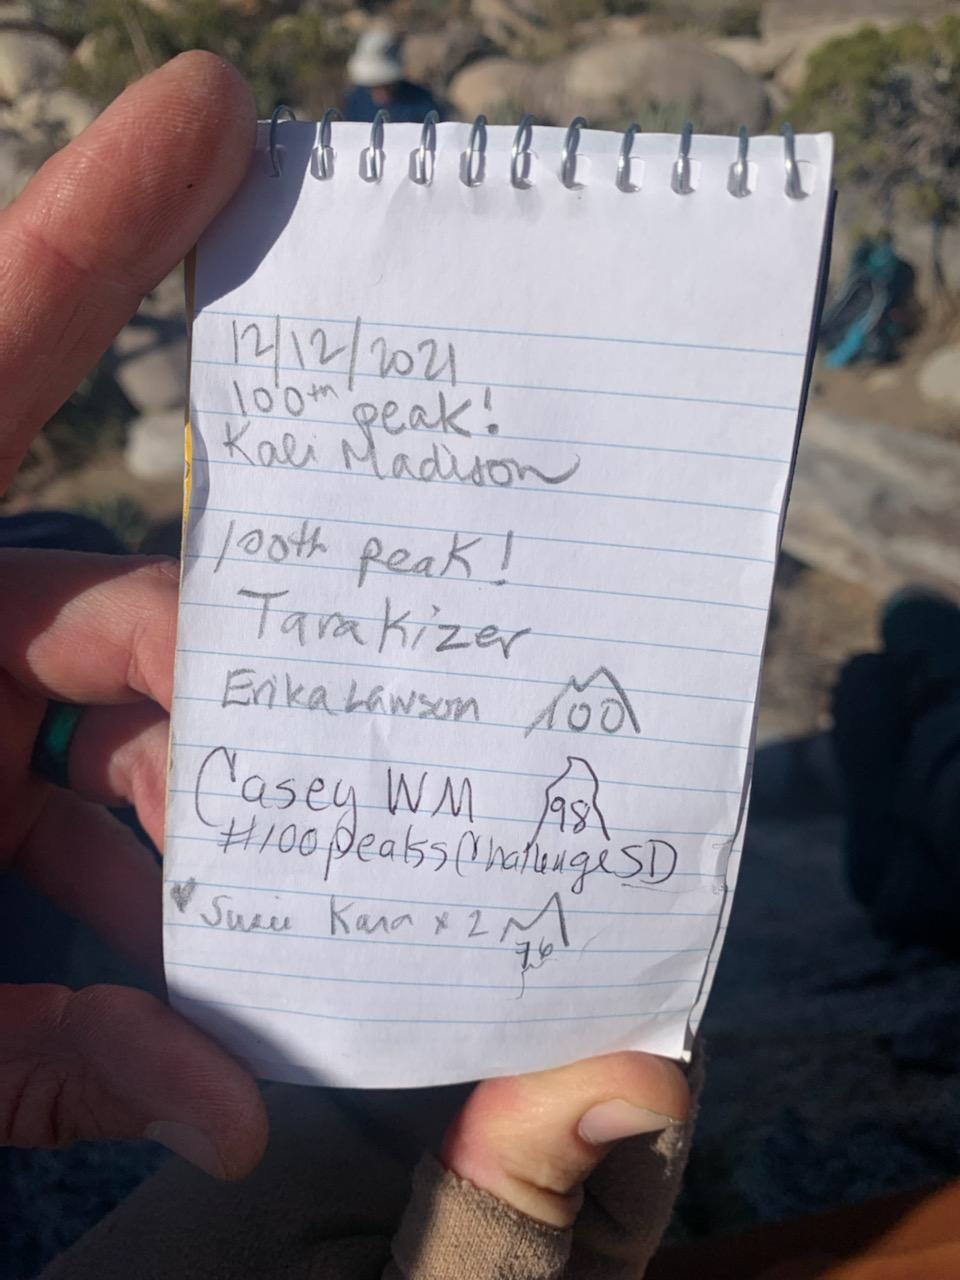 12/12/2021
100th peak!
Kali Madison
100th peak!
Tara Kizer
Erika Lawson 100
Casey WM 98
#100peaksChallengeSD
♥ Susie Kara x 2 76